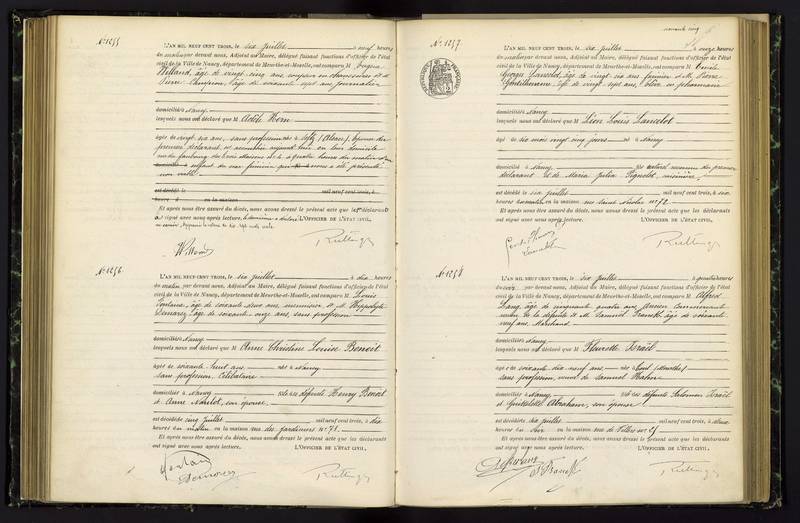 N° 1255
L'AN MIL NEUF CENT TROIS, le six juillet à neuf heures
du matin par devant nous, Adjoint au Maire, délégué faisant fonctions d'officier de l'état
civil de la Ville de Nancy, département de Meurthe-et-Moselle, ont comparu M
Willand, âgé de vingt cinq ans, coupeur en chaussures et M
Pierre Champion, âgé de soixante sept ans, journalier
domiciliés à Nancy
lesquels nous ont déclaré que M Adèle Horn
âgée de vingt six ans, sans profession née à (Alsace), épouse du
premier déclarant, est accouchée aujourd'hui en leur domicile
rue du faubourg des trois Maisons n° à quatre heures du matin
enfant du sexe féminin qui nous a été présenté
non vivant
est décédé le mil neuf cent trois, à
heures d en la maison
Et après nous être assuré du décès, nous avons dressé le présent acte que le 1er déclarant
a signé avec nous après lecture, le deuxième a déclaré L'OFFICIER DE L'ÉTAT CIVIL,
Willand
N° 1256
L'AN MIL NEUF CENT TROIS, le six juillet à dix heures
du matin, par devant nous, Adjoint au Maire, délégué faisant fonctions d'officier de l'état
civil de la Ville de Nancy, département de Meurthe-et-Moselle, ont comparu M Louis
âgé de soixante deux ans, menuisier et M. Hippolyte
Demarez, âgé de soixante onze ans, sans profession
domiciliés à Nancy
lesquels nous ont déclaré que M Anne Christine Louise Benoit
âgée de soixante huit ans née à Nancy
sans profession, célibataire
domiciliée à Nancy fille des défunts Henry Benoit
et Anne son épouse
est décédée cinq juillet mil neuf cent trois, à dix
heures du matin en la maison rue des jardiniers n° 71
Et après nous être assuré du décès, nous avons dressé le présent acte que les déclarants
ont signé avec nous après lecture. L'OFFICIER DE L'ÉTAT CIVIL,
Demarez
N° 1257
L'AN MIL NEUF CENT TROIS, le six juillet à onze heures
du matin par devant nous, Adjoint au Maire, délégué faisant fonctions d'officier de l'état
civil de la Ville de Nancy, département de Meurthe-et-Moselle, ont comparu M
Georges Lancelot, âgé de vingt six ans, et M. Pierre
âgé de vingt sept ans, élève en pharmacie
domiciliés à Nancy
lesquels nous ont déclaré que M Léon Louis Lancelot
âgé de six mois vingt cinq jours né à Nancy
domicilié à Nancy fils naturel reconnu du premier
déclarant et de Maria Julia
est décédé le six juillet mil neuf cent trois, à six
heures du matin en la maison rue Saint Nicolas n° 72
Et après nous être assuré du décès, nous avons dressé le présent acte que les déclarants
ont signé avec nous après lecture. L'OFFICIER DE L'ÉTAT CIVIL,
N° 1258
L'AN MIL NEUF CENT TROIS, le six juillet à quatre heures
du soir par devant nous, Adjoint au Maire, délégué faisant fonctions d'officier de l'état
civil de la Ville de Nancy, département de Meurthe-et-Moselle, ont comparu M Alfred
âgé de cinquante quatre ans, ancien commerçant
neveu de la défunte et M. Samuel Franck âgé de soixante
neuf ans, Marchand
domiciliés à Nancy
lesquels nous ont déclaré que M Fleurette Israël
âgée de soixante dix neuf ans née à Toul (Meurthe)
sans profession, veuve de Samuel
domiciliée à Nancy fille des défunts Salomon Israël
et Abraham, son épouse
est décédée six juillet mil neuf cent trois, à deux
heures du soir en la maison rue de Villers n°
Et après nous être assuré du décès, nous avons dressé le présent acte que les déclarants
ont signé avec nous après lecture. L'OFFICIER DE L'ÉTAT CIVIL,
S. Franck